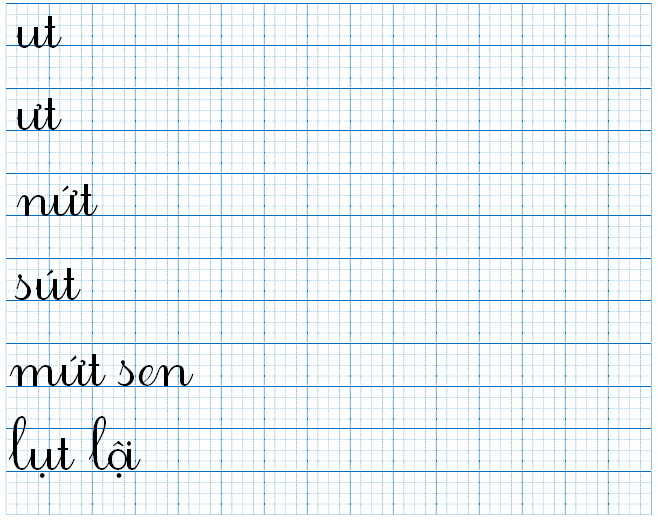 ut
ưt
nứt
sút
mứt sen
lụt lội